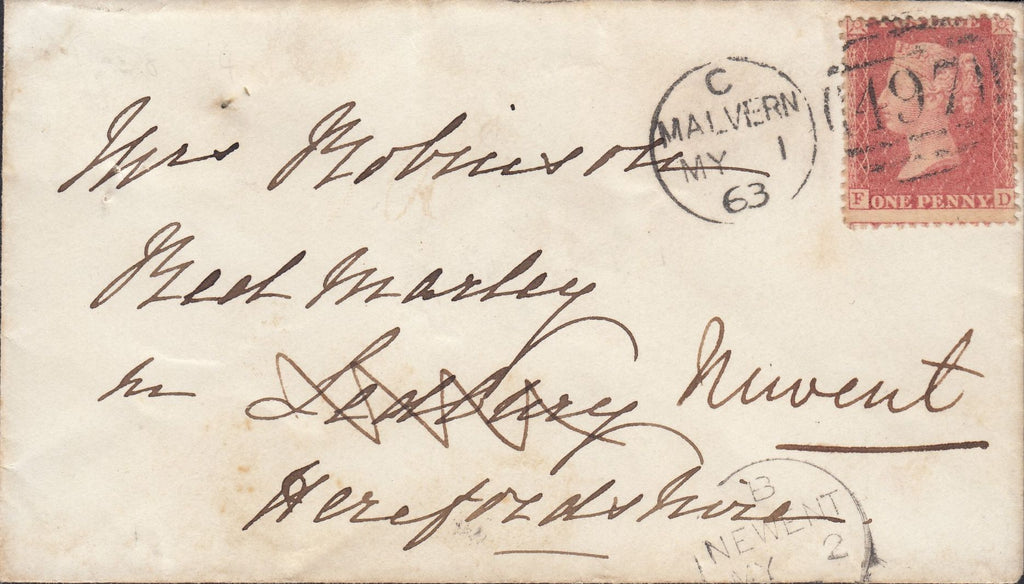 C
MALVERN
MY 1
63
497
F ONE PENNY D
Mrs Robinson
Red Marley
nr Ledbury Newent
Herefordshire
B
NEWENT
MY 2